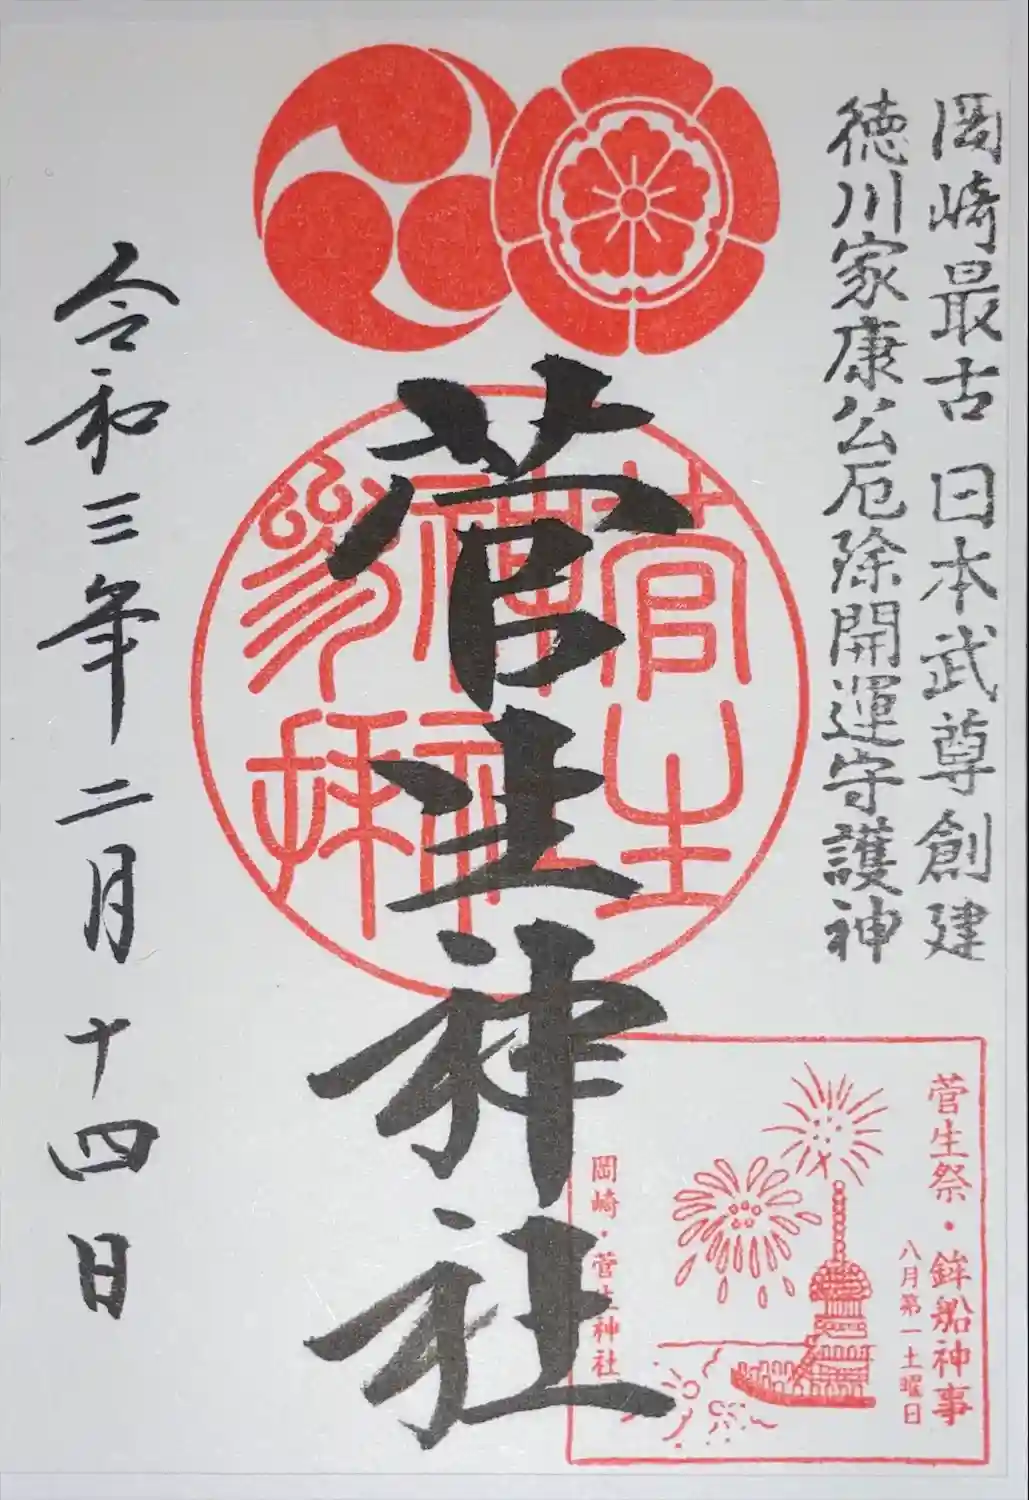 岡崎最古 日本武尊創建
徳川家康公厄除開運守護神
菅生神社
菅生
神社
参拝
令和三年二月十四日
菅生祭・鉾船神事
八月第一土曜日
岡崎・菅生神社